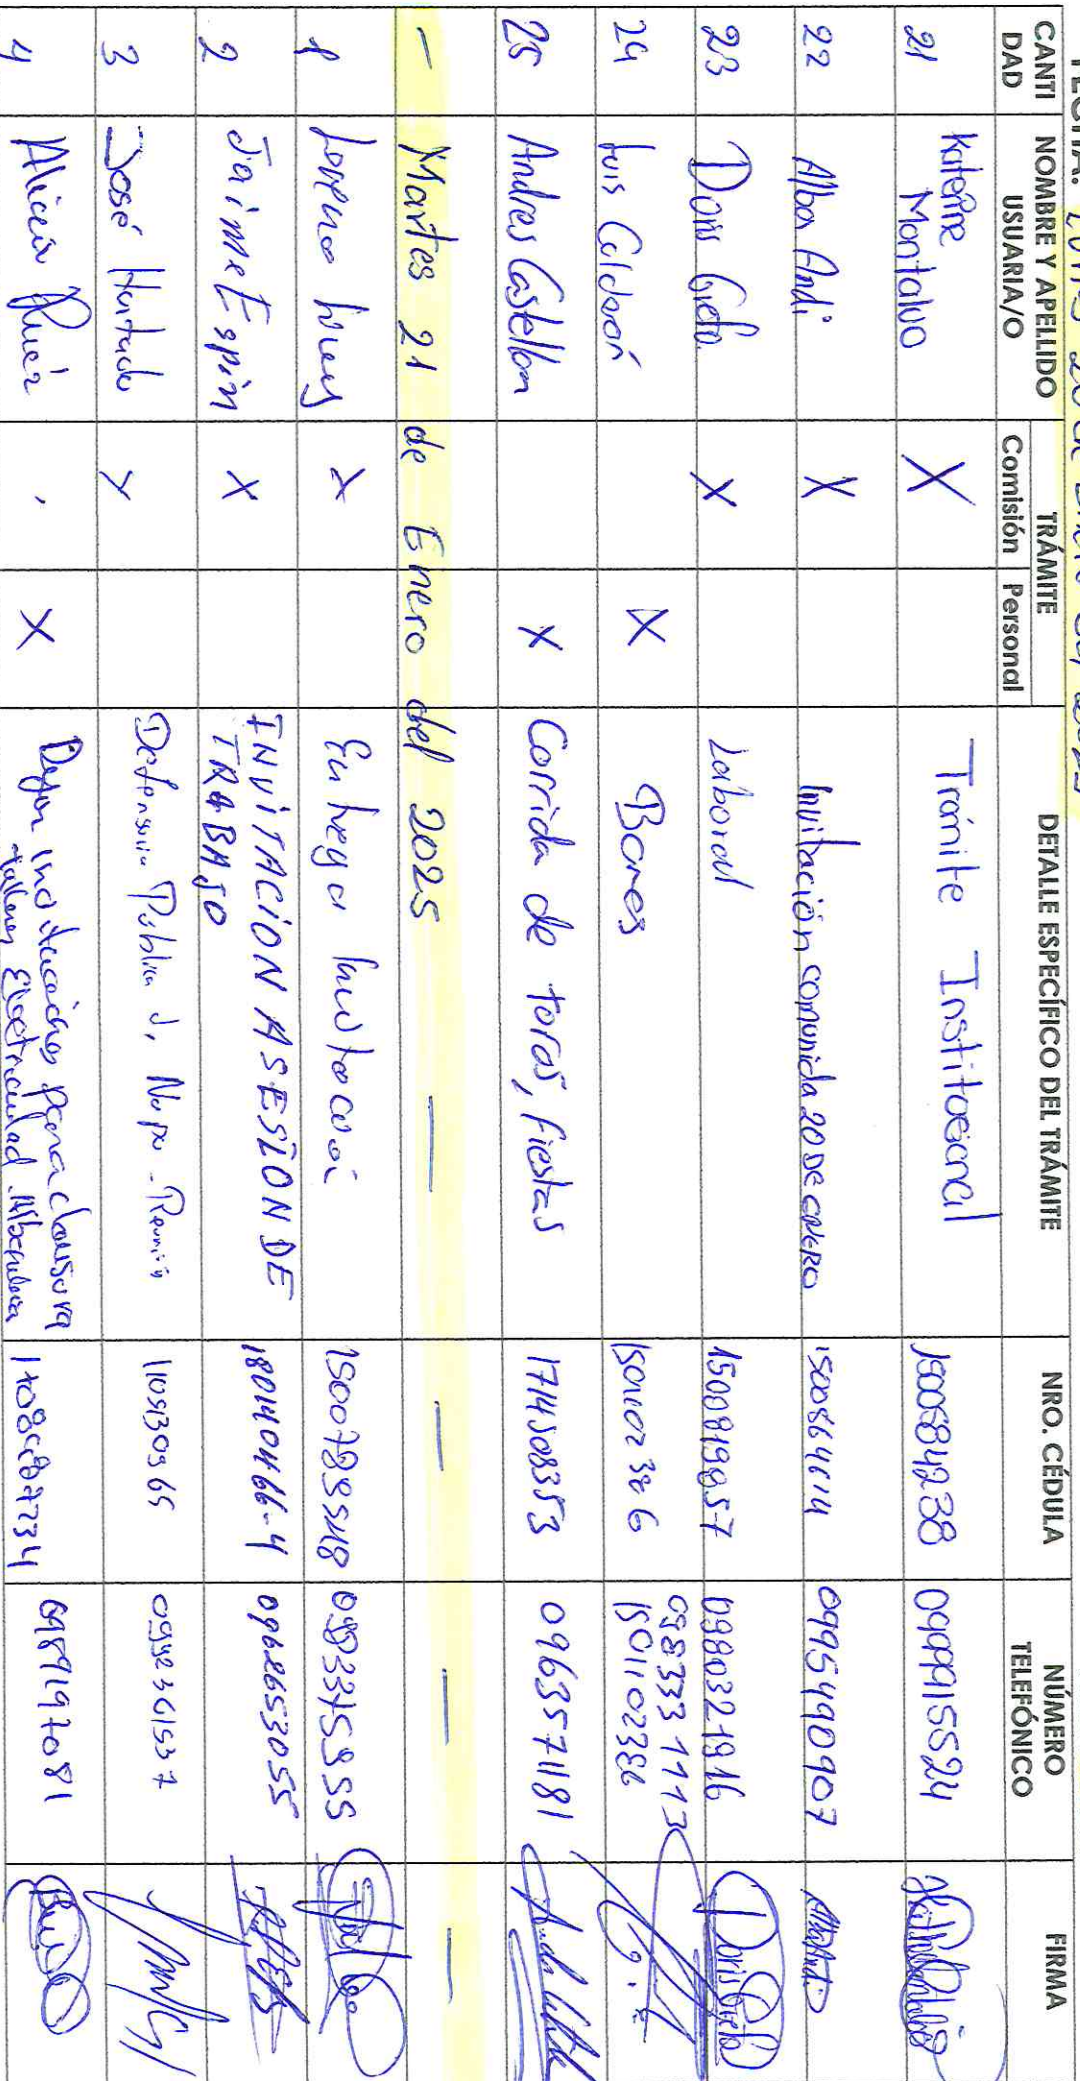 FECHA: Lunes 20 de Enero del 2025
CANTI DAD | NOMBRE Y APELLIDO USUARIA/O | TRÁMITE Comisión | Personal | DETALLE ESPECÍFICO DEL TRÁMITE | NRO. CÉDULA | NÚMERO TELEFÓNICO | FIRMA
21 Montalvo X Trámite Institucional 1500584238 0999915524
22 Alba Andi X Invitación comunida 20 DE ENERO 1500564614 0995490907
23 Doris Grefa X Laboral 1500819857 0980321916 Doris Grefa
24 Luis Calderón X Bares 1501102386 0983331113
1501102386
25 Andres Castellon X Corrida de toros, fiestas 1714508353 0963571181
— Martes 21 de Enero del 2025 — — — —
1 X Entrega Invitación
2 Jaime Espin X INVITACION A SESION DE
TRABAJO 180140466-4 0962653055
3 José Hurtado X Defensoria Pública de Napo - Reunión 1105130965 0992361537
4 Alicia X clausura
talleres Electricidad 0989197081